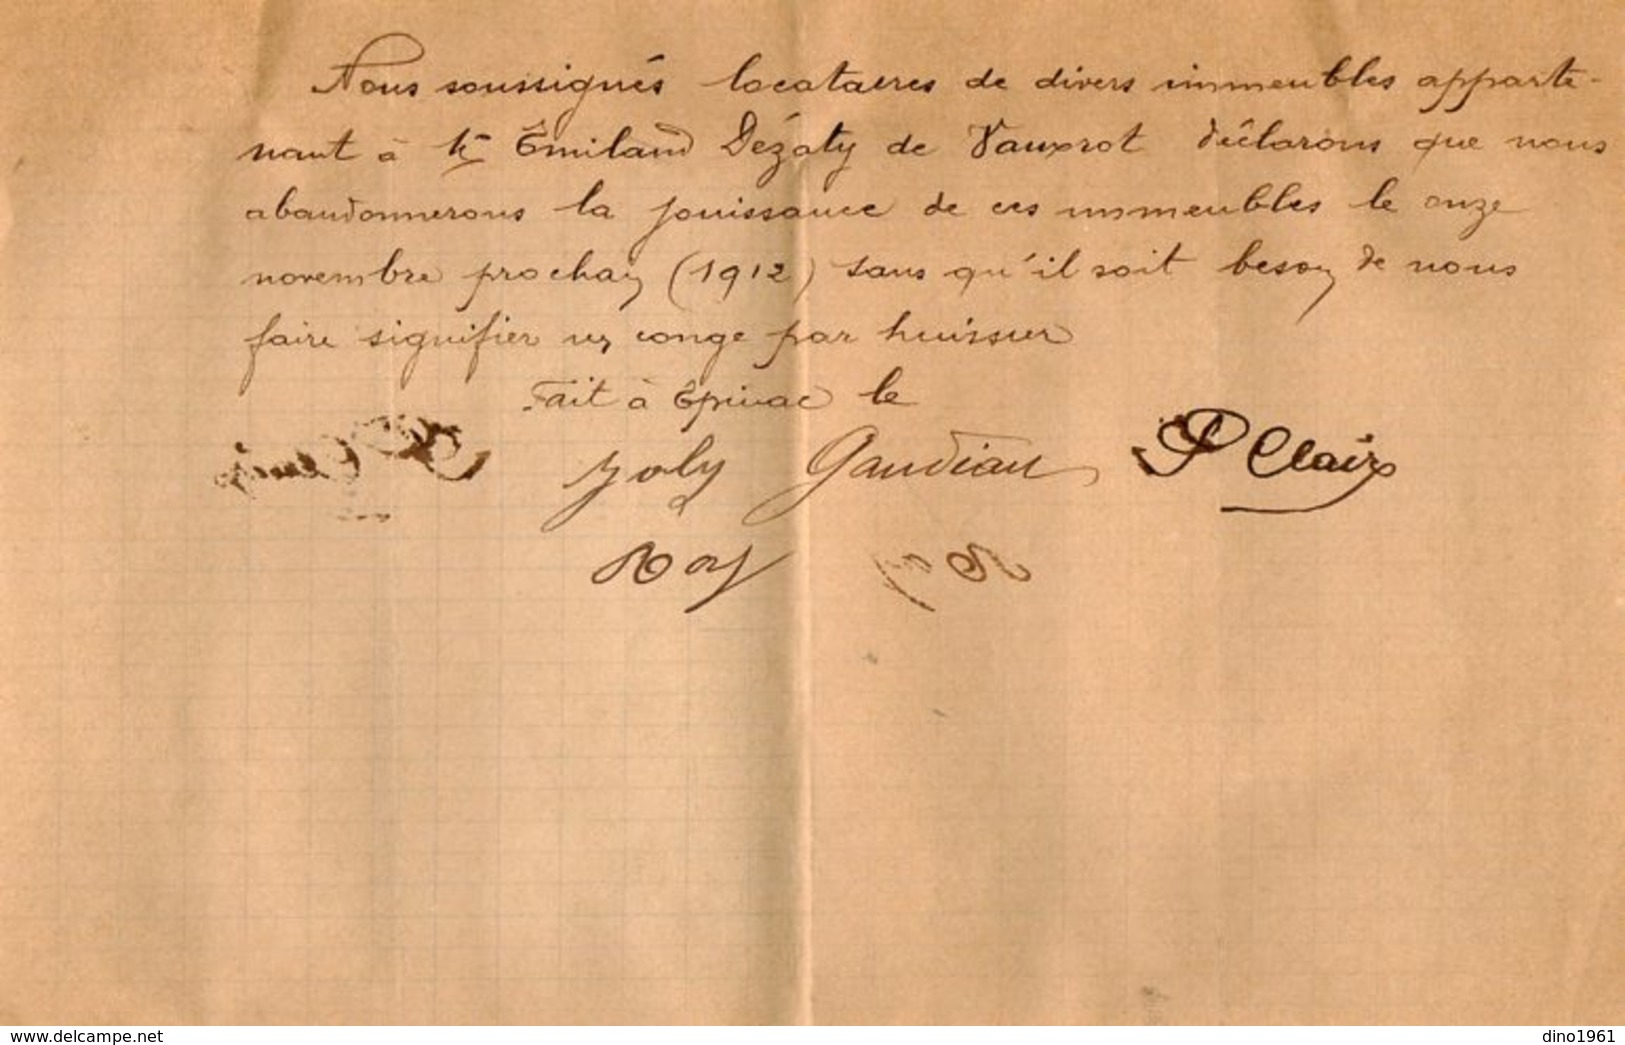 Nous soussignés locataires de divers immeubles apparte-
nant à Mr Émiland Dézaty de Vauxrot déclarons que nous
abandonnerons la jouissance de ces immeubles le onze
novembre prochain (1912) sans qu'il soit besoin de nous
faire signifier un congé par huissier
Fait à Épinac le
Joly Gaudiau P Clair
Roy
www.delcampe.net
dino1961